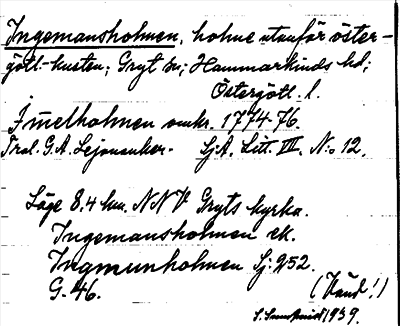 Ingemansholmen, holme utanför öster-
götl-kusten; Gryt sn; Hammarkinds hd;
Östergötl. l.
Imelholmen omkr. 1774-76.
Tral. G.A. Lejonanker. SjA. Litt. VII. No 12.
Läge 8.4 km. NNV Gryts kyrka.
Ingemansholmen ek.
Ingmunholmen Sj: 952.
G. 46. (Vänd!)
1939.